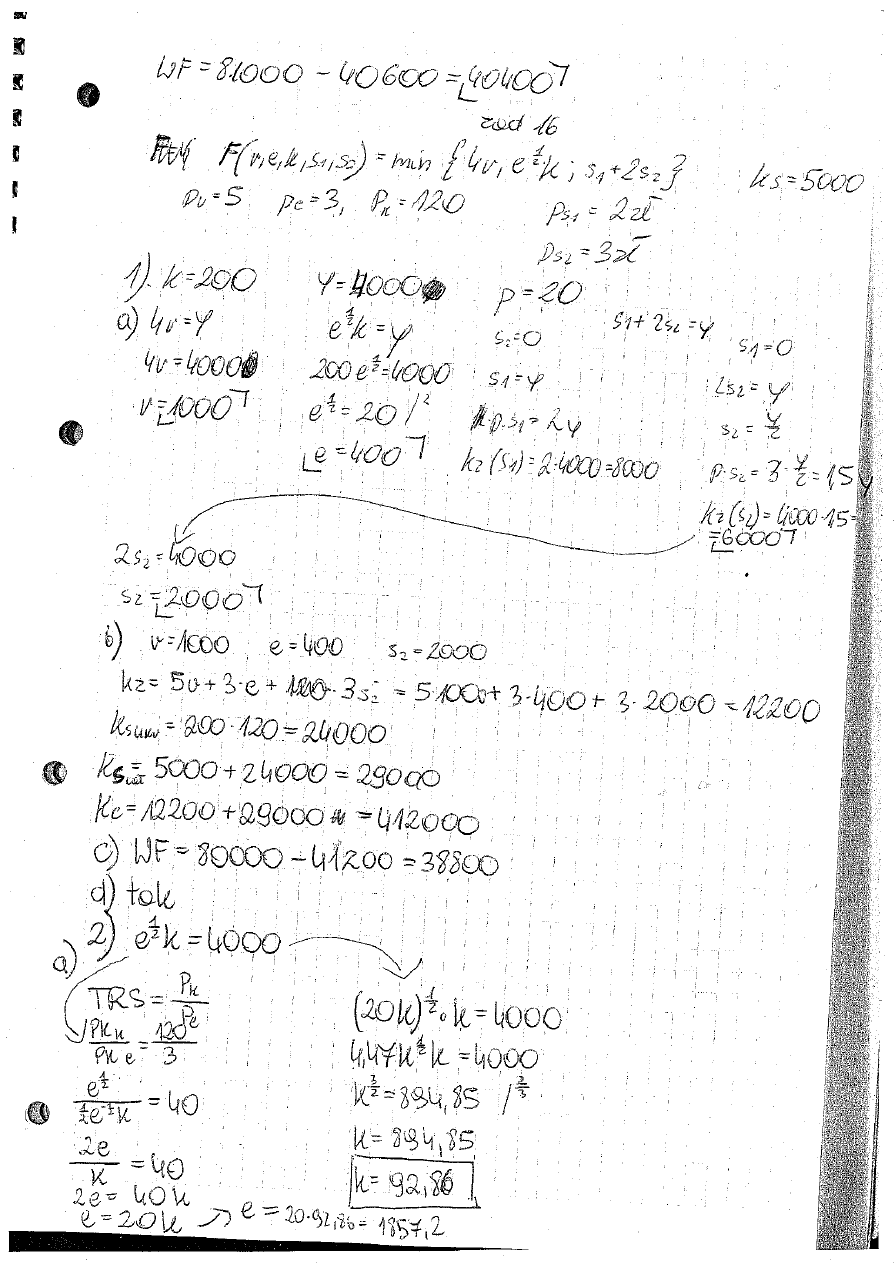 WF = 81000 - 40600 = 40400
zad 16
F(v,e,k,s₁,s₂) = min {4v, e^½k; s₁+2s₂} ks = 5000
pv = 5 pe = 3, Pk = 120 ps₁ = 2zł
ps₂ = 3zł
1). k = 200 y = 4000 p = 20
a) 4v = y e^½k = y s₂ = 0 s₁ + 2s₂ = y s₁ = 0
4v = 4000 200e^½ = 4000 s₁ = y 2s₂ = y
v = 1000 e^½ = 20 /² p·s₁ = 2y s₂ = y/2
e = 400 kz (s₁) = 2·4000 = 8000 p·s₂ = 3·y/2 = 1,5 y
kz (s₂) = 4000·1,5 =
= 6000
2s₂ = 4000
s₂ = 2000
b) v = 1000 e = 400 s₂ = 2000
kz = 5v + 3·e + 3s₂ = 5·1000 + 3·400 + 3·2000 = 12200
= 200·120 = 24000
= 5000 + 24000 = 29000
Kc = 12200 + 29000 = 412000
c) WF = 80000 - 41200 = 38800
d) tak
2) e^½k = 4000
a)
TRS = Pk/Pe (20k)^½ · k = 4000
PKk/PKe = 120/3 4,47k^½k = 4000
e^½/½e^-½k = 40 k^3/2 = 894,85 /^2/3
2e/k = 40 k = 894,85
2e = 40k k = 92,86
e = 20k → e = 20·92,86 = 1857,2